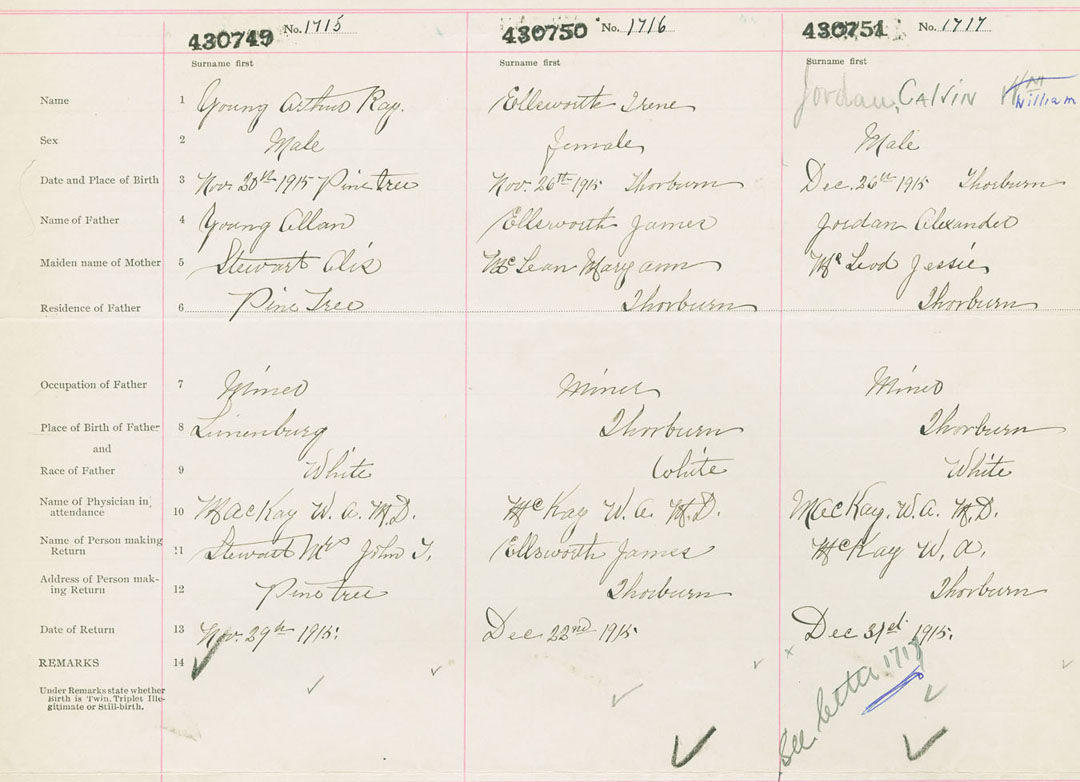 430749 No. 1715 430750 No. 1716 430751 No. 1717
Surname first Surname first Surname first
Name 1 Young Arthur Ray. Ellsworth Irene Jordan, CALVIN Wm William
Sex 2 Male female Male
Date and Place of Birth 3 Nov. 20th 1915 Pine tree Nov. 26th 1915 Thorburn Dec. 26th 1915 Thorburn
Name of Father 4 Young Allan Ellsworth James Jordan Alexander
Maiden name of Mother 5 Stewart Alis McLean Maryann McLeod Jessie
Residence of Father 6 Pine Tree Thorburn Thorburn
Occupation of Father 7 Miner Miner Miner
Place of Birth of Father 8 Lunenburg Thorburn Thorburn
and
Race of Father 9 White White White
Name of Physician in
attendance 10 MacKay W. A. M.D. McKay W. A. M.D. MacKay. W. A. M.D.
Name of Person making
Return 11 Stewart Mrs John T. Ellsworth James McKay W. A.
Address of Person mak-
ing Return 12 Pine tree Thorburn Thorburn
Date of Return 13 Nov. 29th 1915. Dec 22nd 1915. Dec 31st 1915.
REMARKS 14
See letter 1718
Under Remarks state whether
Birth is Twin, Triplet Ille-
gitimate or Still-birth.